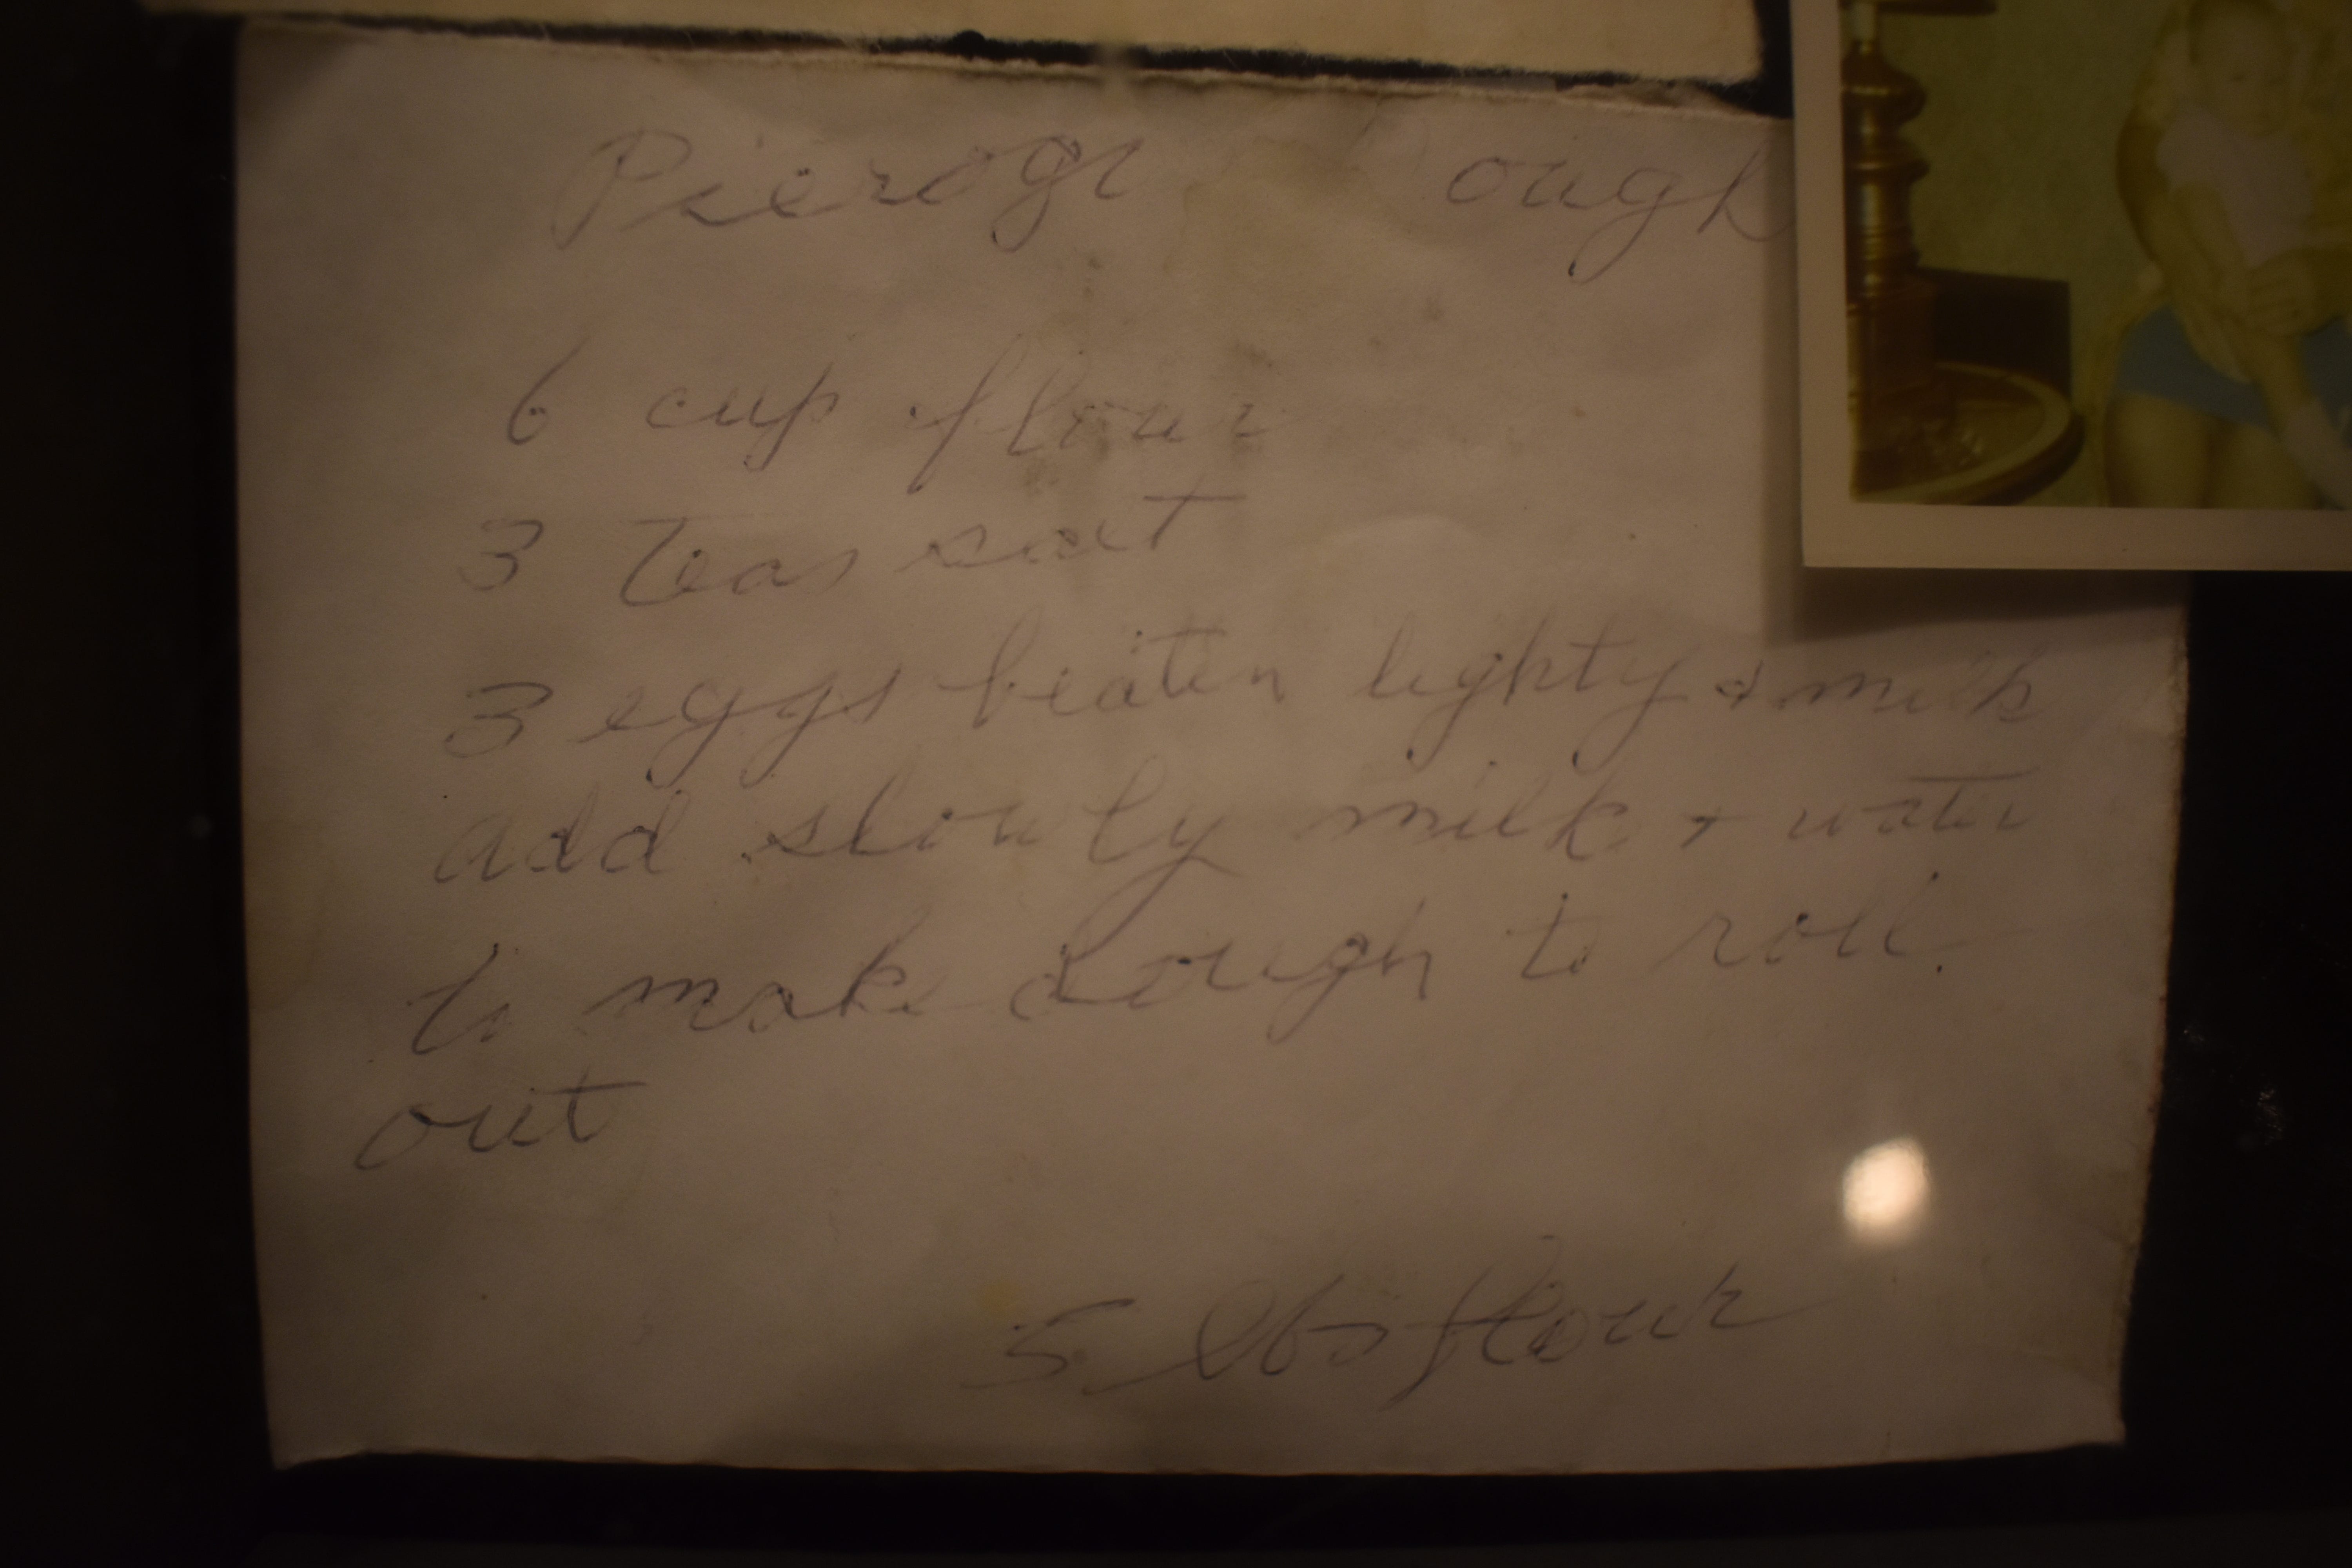 Pierogi ough
6 cup flour
3 teas salt
3 eggs beaten lighty + milk
add slowly milk + water
to make dough to roll
out
5 lbs flour